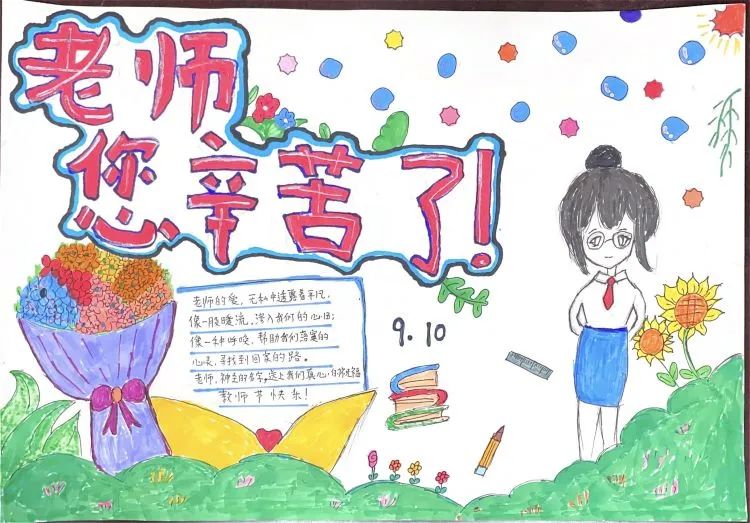 老师
您辛苦了!
老师的爱，无私中透露着平凡，
像一股暖流，渗入我们的心田；
像一种呼唤，帮助我们落寞的
心灵，寻找到回家的路。
老师，神圣的名字。送上我们真心
教师节快乐！
9.10